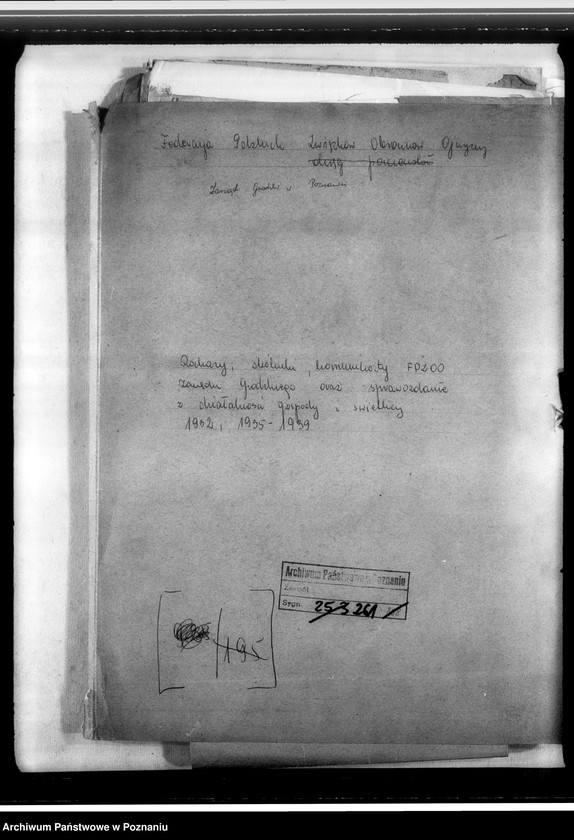 Federacja Polskich Związków Obrońców Ojczyzny
okręg poznański
Zarząd Grodzki w Poznaniu
Rozkazy, okólniki, komunikaty FPZOO
Zarządu Grodzkiego oraz sprawozdanie
z działalności gospody i świetlicy
1932, 1935-1939
Archiwum Państwowe w Poznaniu
Zespół
Sygn. 253 261
195
Archiwum Państwowe w Poznaniu